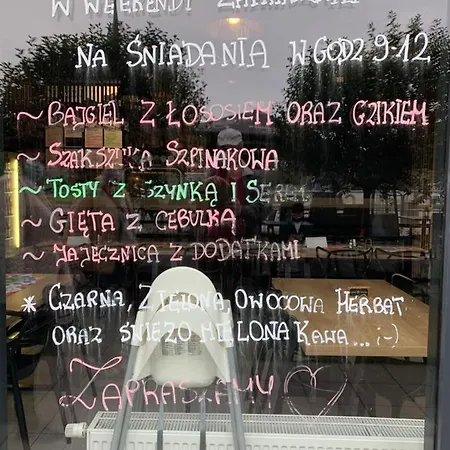 W WEEKENDY ZAPRASZAMY
NA ŚNIADANIA W GODZ 9-12
~ BAJGIEL Z ŁOSOSIEM ORAZ GZIKIEM
~ SZAKSZUKA SZPINAKOWA
~ TOSTY Z SZYNKĄ I SEREM
~ GIĘTA Z CEBULKĄ
~ JAJECZNICA Z DODATKAMI
* CZARNA, ZIELONA, OWOCOWA HERBAT
ORAZ ŚWIEŻO MIELONA KAWA...;-)
ZAPRASZAMY ♡